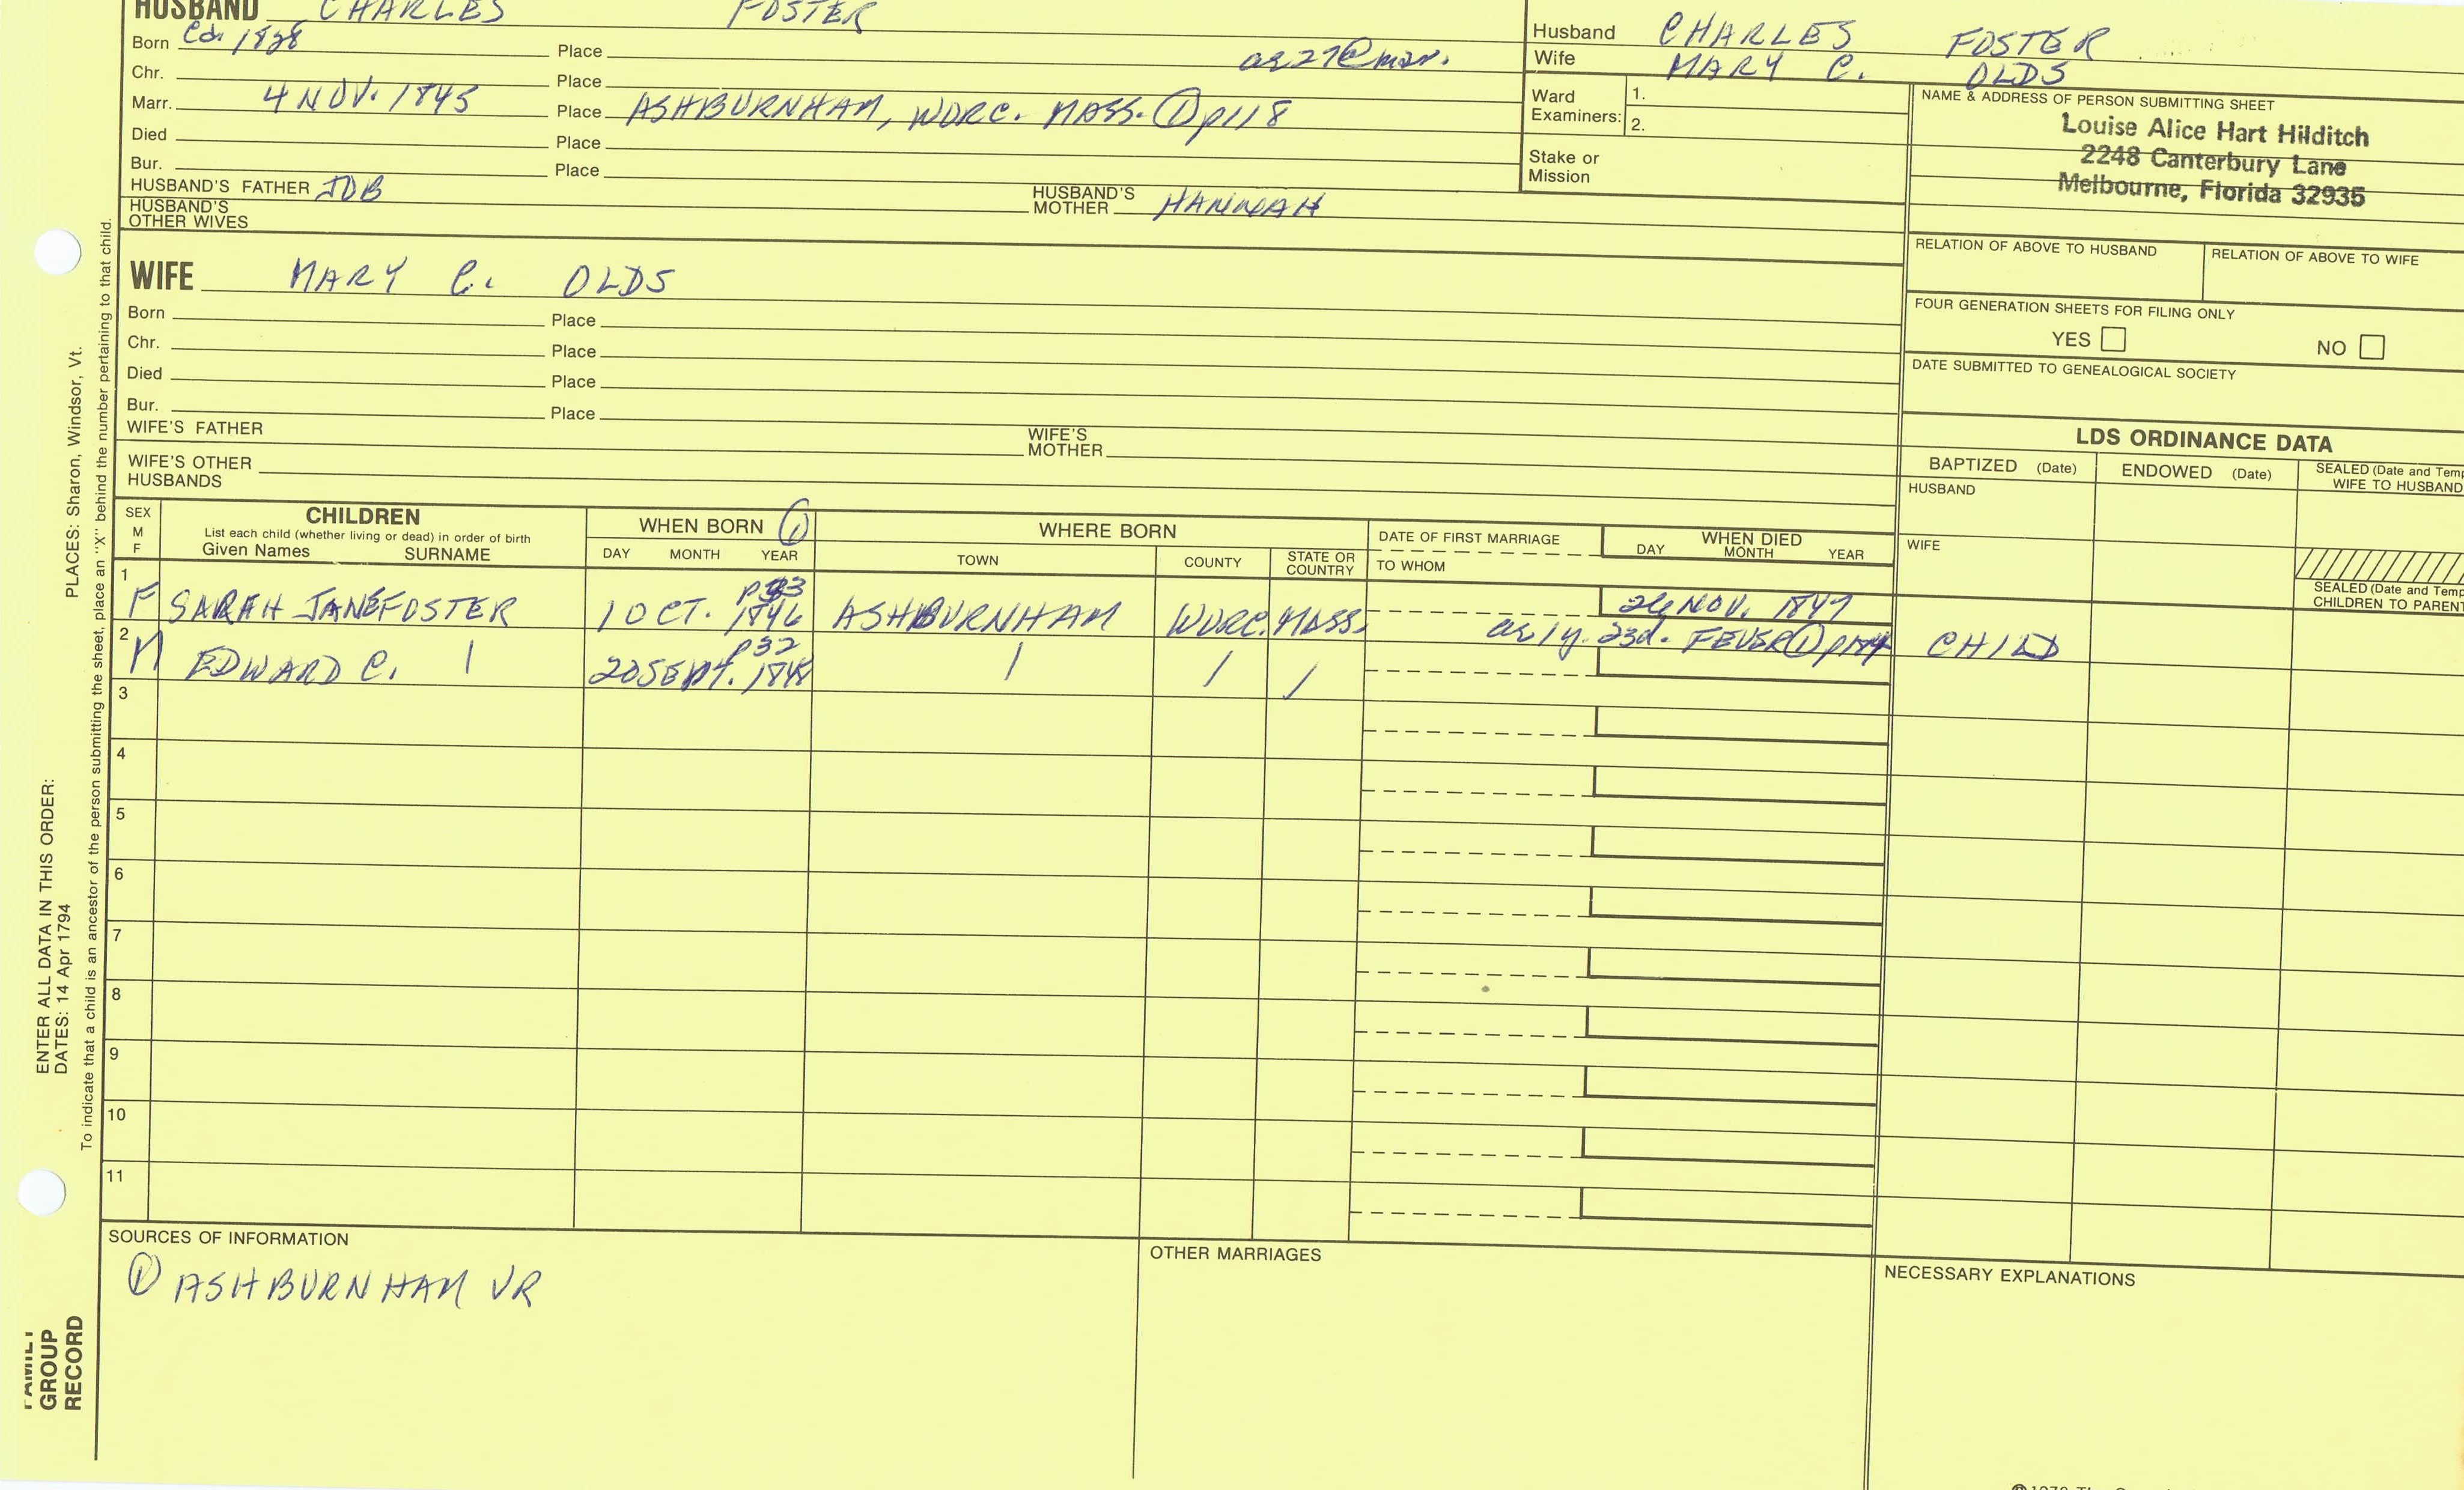 HUSBAND CHARLES FOSTER
Born Ca. 1828 Place ae 27 @ mar.
Chr. Place
Marr. 4 NOV. 1845 Place ASHBURNHAM, WORC. MASS. ① p118
Died Place
Bur. Place
HUSBAND'S FATHER JOB HUSBAND'S MOTHER HANNAH
HUSBAND'S OTHER WIVES
Husband CHARLES FOSTER
Wife MARY C. OLDS
Ward Examiners: 1.
2.
Stake or Mission
NAME & ADDRESS OF PERSON SUBMITTING SHEET
Louise Alice Hart Hilditch
2248 Canterbury Lane
Melbourne, Florida 32935
RELATION OF ABOVE TO HUSBAND RELATION OF ABOVE TO WIFE
FOUR GENERATION SHEETS FOR FILING ONLY
YES NO
DATE SUBMITTED TO GENEALOGICAL SOCIETY
WIFE MARY C. OLDS
Born Place
Chr. Place
Died Place
Bur. Place
WIFE'S FATHER WIFE'S MOTHER
WIFE'S OTHER HUSBANDS
LDS ORDINANCE DATA
BAPTIZED (Date) ENDOWED (Date) SEALED (Date and Temp
WIFE TO HUSBAND
HUSBAND
WIFE
SEALED (Date and Temp
CHILDREN TO PARENT
SEX M F CHILDREN
List each child (whether living or dead) in order of birth
Given Names SURNAME
WHEN BORN ①
DAY MONTH YEAR
WHERE BORN
TOWN COUNTY STATE OR COUNTRY
DATE OF FIRST MARRIAGE
TO WHOM
WHEN DIED
DAY MONTH YEAR
1 F SARAH JANE FOSTER 1 OCT. 1846 p33 ASHBURNHAM WORC. MASS. 24 NOV. 1847
ae 1y. 23d. FEVER ① CHILD
2 M EDWARD C. | 20 SEPT. 1848 p32 | / /
3
4
5
6
7
8
9
10
11
SOURCES OF INFORMATION
① ASHBURNHAM VR
OTHER MARRIAGES
NECESSARY EXPLANATIONS
PLACES: Sharon, Windsor, Vt.
ENTER ALL DATA IN THIS ORDER:
DATES: 14 Apr 1794
To indicate that a child is an ancestor of the person submitting the sheet, place an "X" behind the number pertaining to that child.
FAMILY GROUP RECORD